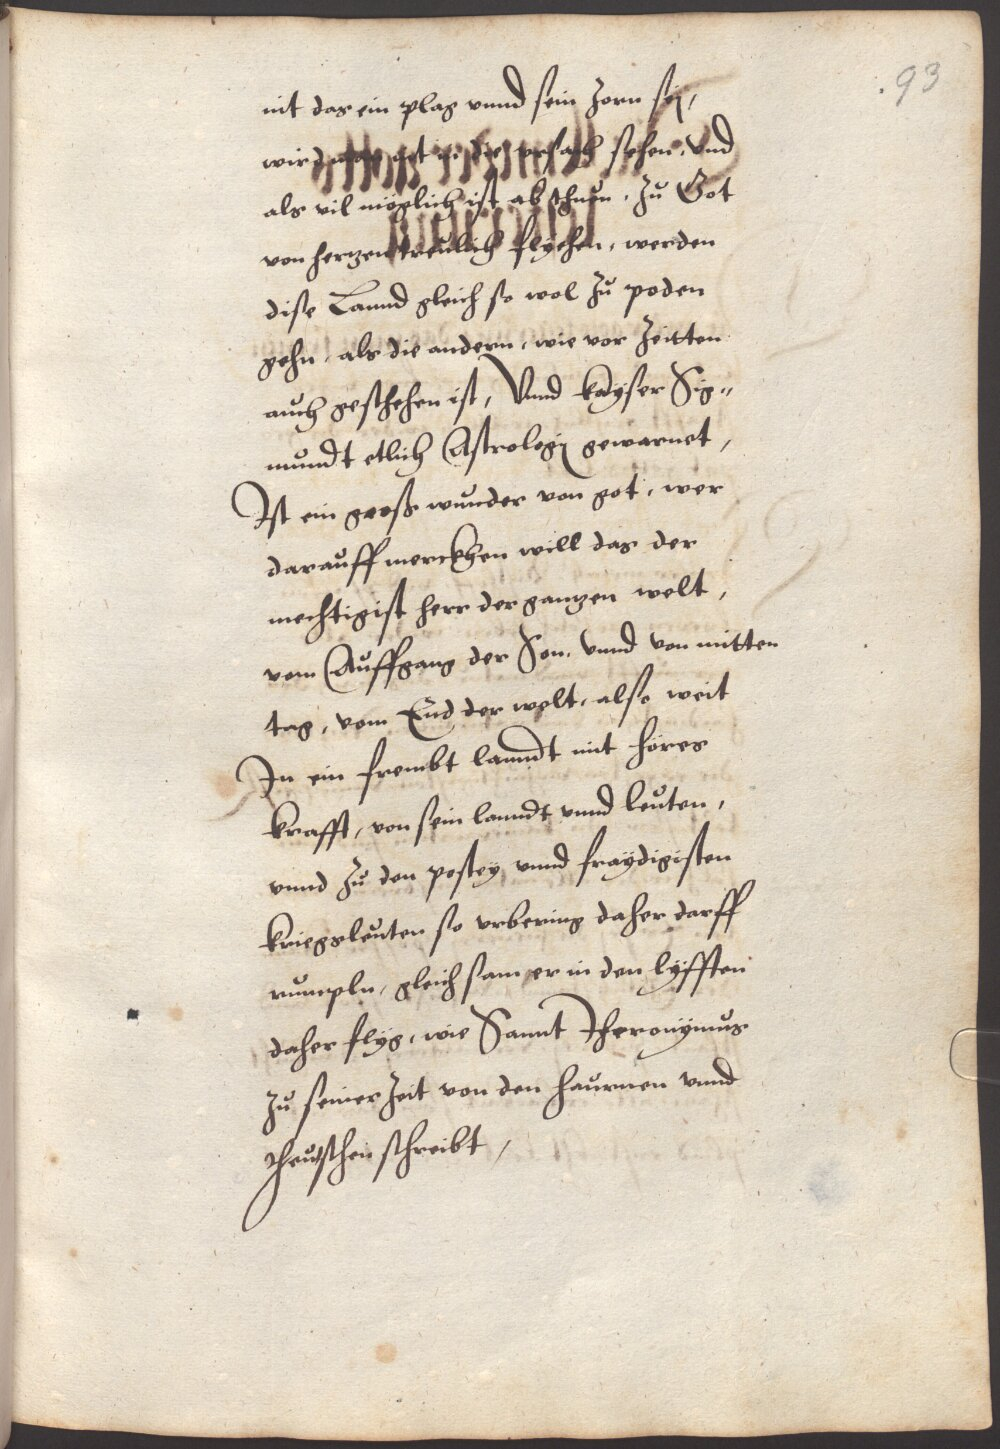 93
nit das ein plag vnnd sein zorn sej,
wird man nit in die vrsach sehen, vnd
als vil möglich ist abthuen, zu Got
von hertzen treulich flyehen, werden
dise Lannd gleich so wol zu poden
gehn, als die andern, wie vor zeitten
auch geschehen ist, Vnnd kayser Sig„
mundt etlich Astrologj gewarnet,
Ist ein gross wunder von got, wer
darauff merckhen will das der
mechtigist herr der gantzen welt,
vom Auffgang der Son, vnnd von mitten
tag, vom End der welt, also weit
In ein frembt lanndt mit höres
krafft, von sein lanndt vnnd leuten,
vnnd zu den pesten vnnd fraydigisten
kriegsleuten so vrbering daher darff
rumpln, gleich sam er in den lyfften
daher flyg, wie Sannt Iheronymus
zu seiner zeit von den haurnen vnnd
theutschen schreibt,